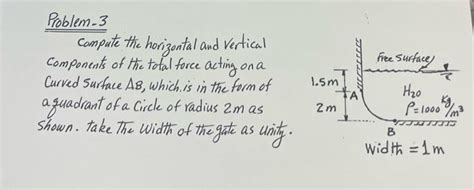 Problem-3
Compute the horizontal and Vertical
Components of the total force acting on a
Curved Surface AB, which is in the form of
a quadrant of a Circle of radius 2m as
Shown. take The Width of the gate as unity.
Free Surface
1.5m
A
H2O
2m
ρ=1000 kg/m³
B
Width = 1m